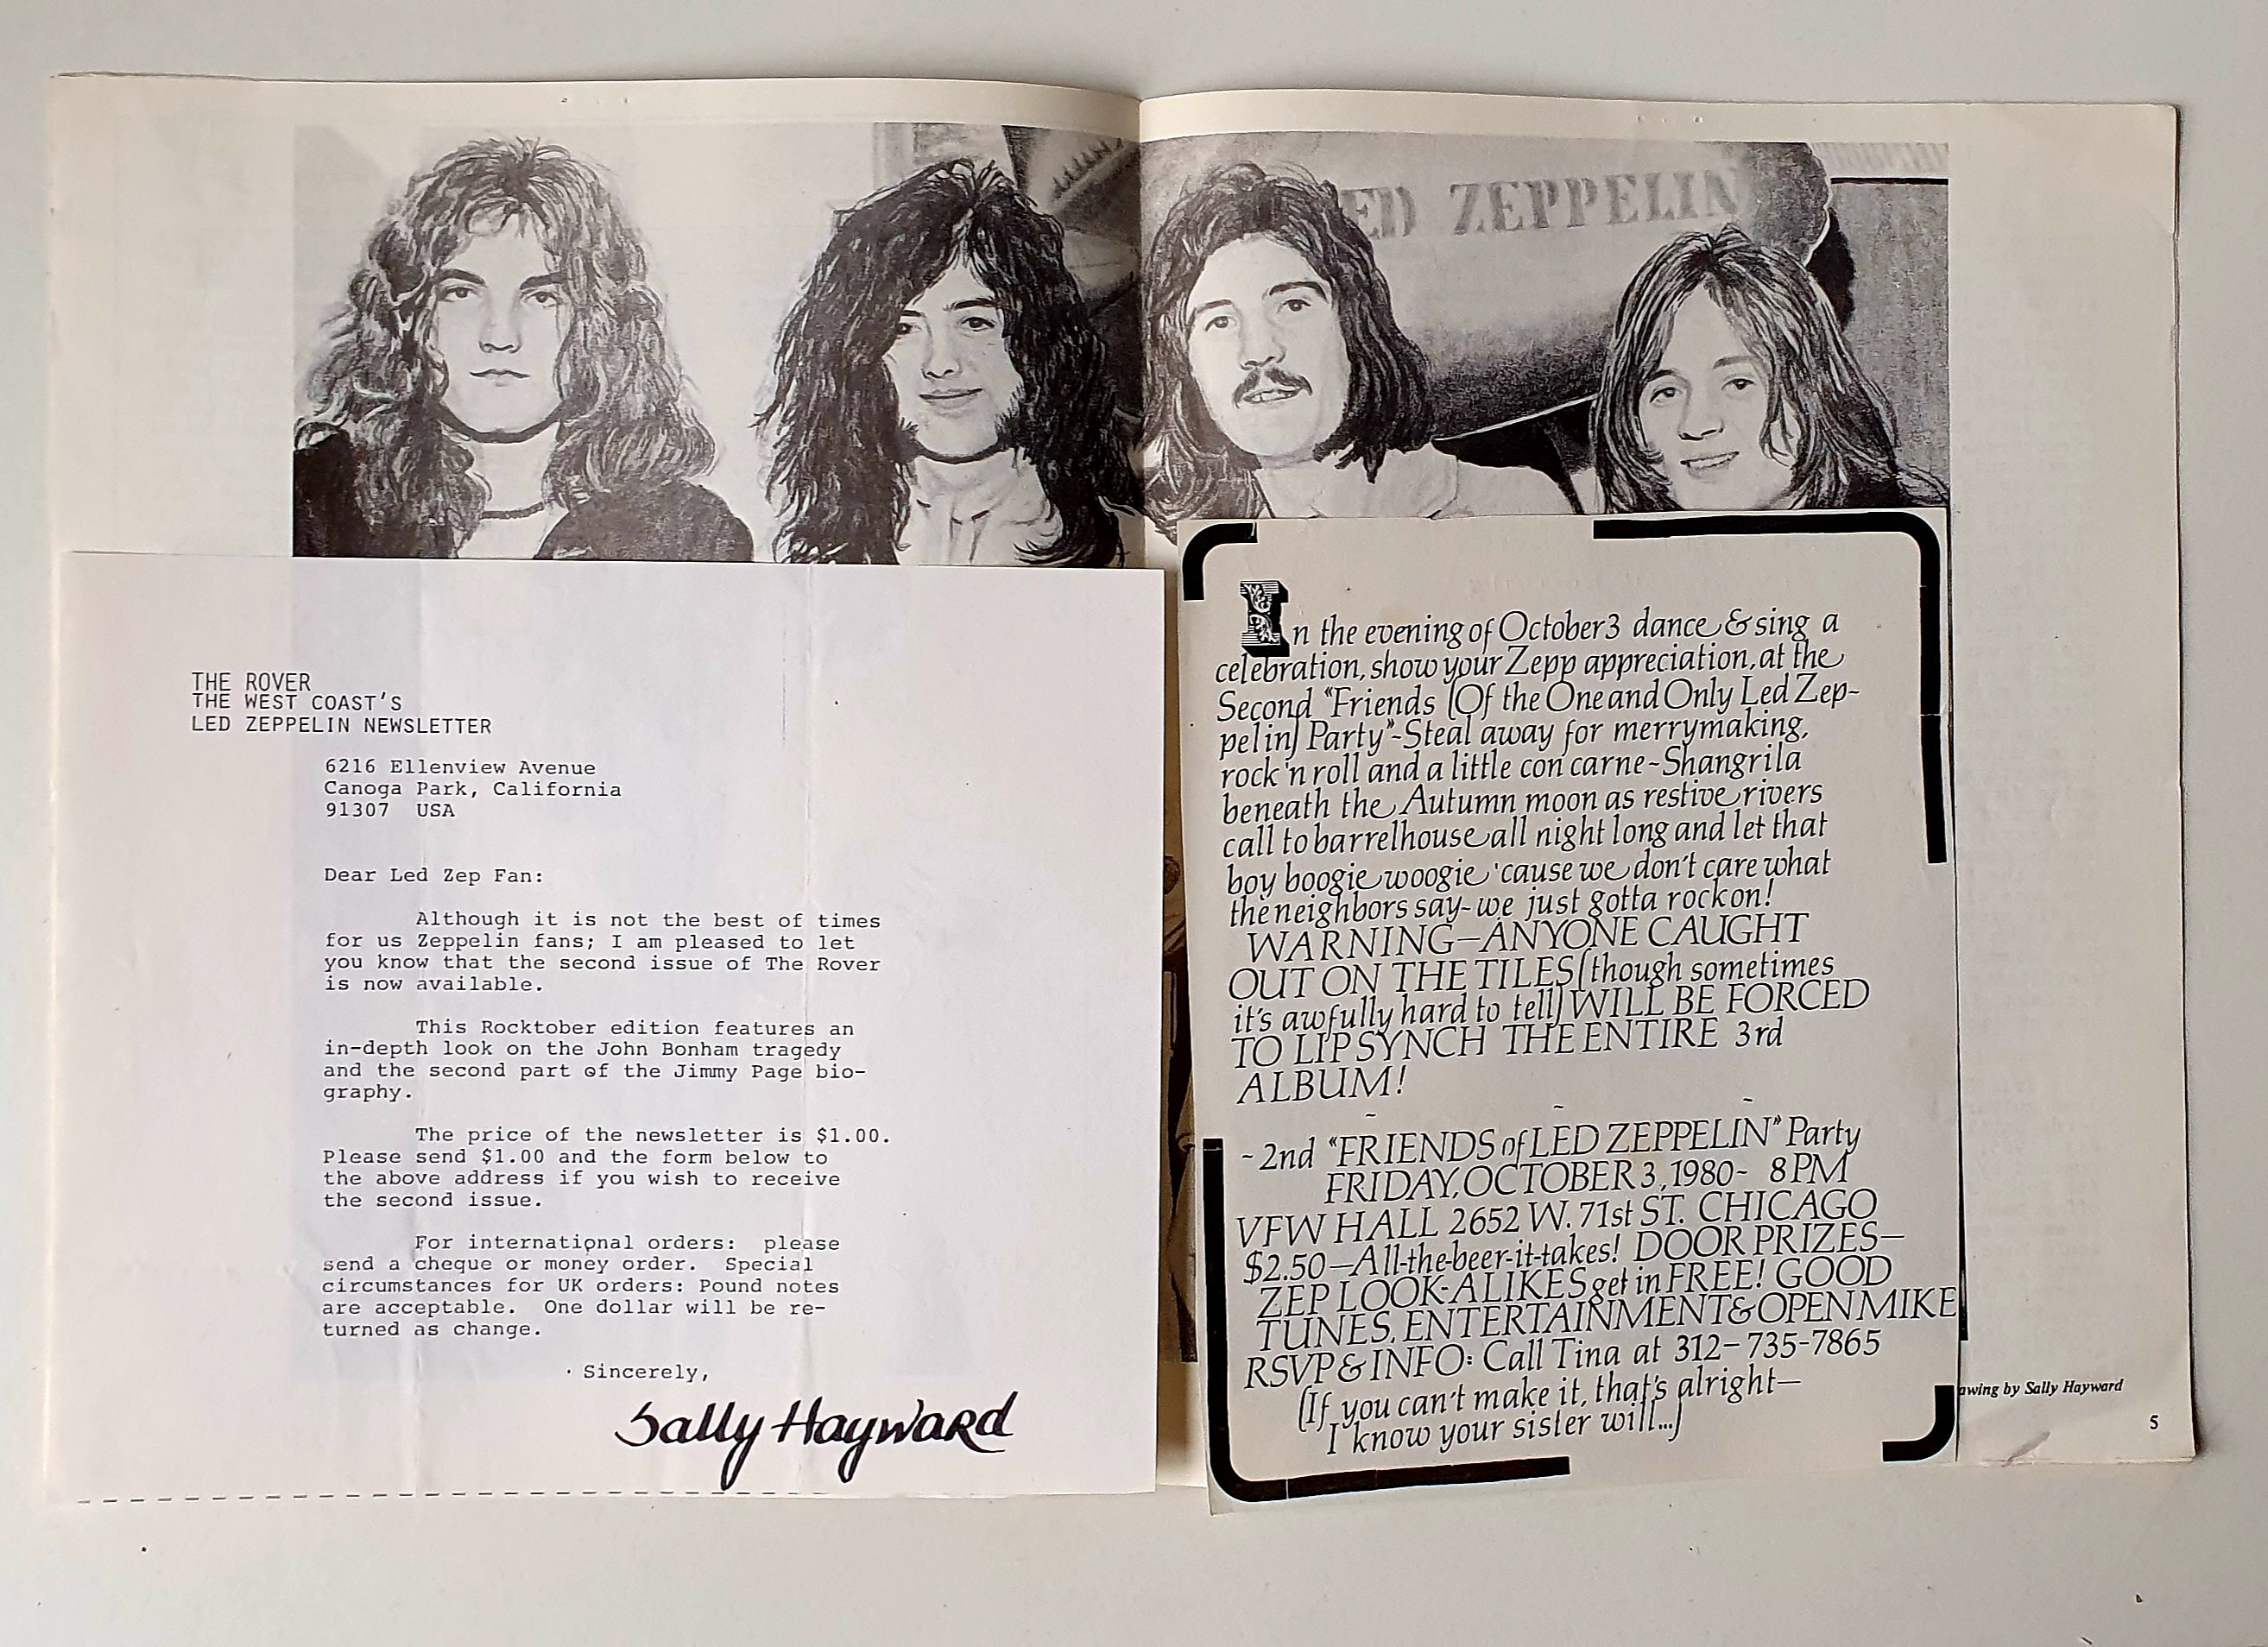 ED ZEPPELIN
THE ROVER
THE WEST COAST'S
LED ZEPPELIN NEWSLETTER
6216 Ellenview Avenue
Canoga Park, California
91307 USA
Dear Led Zep Fan:
Although it is not the best of times
for us Zeppelin fans; I am pleased to let
you know that the second issue of The Rover
is now available.
This Rocktober edition features an
in-depth look on the John Bonham tragedy
and the second part of the Jimmy Page bio-
graphy.
The price of the newsletter is $1.00.
Please send $1.00 and the form below to
the above address if you wish to receive
the second issue.
For international orders: please
send a cheque or money order. Special
circumstances for UK orders: Pound notes
are acceptable. One dollar will be re-
turned as change.
Sincerely,
Sally Hayward
In the evening of October 3 dance & sing a
celebration, show your Zepp appreciation, at the
Second "Friends (Of the One and Only Led Zep-
pelin) Party"~Steal away for merrymaking,
rock 'n roll and a little con carne~Shangrila
beneath the Autumn moon as restive rivers
call to barrelhouse all night long and let that
boy boogie woogie 'cause we don't care what
the neighbors say~we just gotta rock on!
WARNING—ANYONE CAUGHT
OUT ON THE TILES (though sometimes
it's awfully hard to tell) WILL BE FORCED
TO LIP SYNCH THE ENTIRE 3rd
ALBUM!
~ ~ ~
~2nd "FRIENDS of LED ZEPPELIN" Party
FRIDAY, OCTOBER 3, 1980~ 8 PM
VFW HALL 2652 W. 71st ST. CHICAGO
$2.50—All-the-beer-it-takes! DOOR PRIZES—
ZEP LOOK-ALIKES get in FREE! GOOD
TUNES, ENTERTAINMENT & OPEN MIKE
RSVP & INFO: Call Tina at 312-735-7865
(If you can't make it, that's alright—
I know your sister will...)
awing by Sally Hayward
5